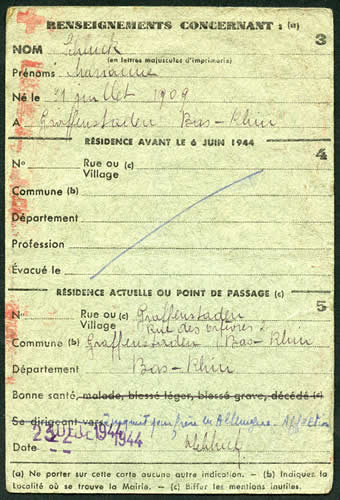 RENSEIGNEMENTS CONCERNANT : (a)
3
NOM Schuck
(en lettres majuscules d'imprimerie)
Prénoms Marianne
Né le 31 juillet 1909
A Graffenstaden Bas-Rhin
RÉSIDENCE AVANT LE 6 JUIN 1944
4
No Rue ou (c)
Village
Commune (b)
Département
Profession
Évacué le
RÉSIDENCE ACTUELLE OU POINT DE PASSAGE (c)
5
No Rue ou (c) Graffenstaden
Village Rue des
Commune (b) Graffenstaden Bas-Rhin
Département Bas-Rhin
Bonne santé, malade, blessé léger, blessé grave, décédé (c)
Se dirigeant vers
Date 1944
(a) Ne porter sur cette carte aucune autre indication. — (b) Indiquez la
Localité où se trouve la Mairie. — (c) Biffer les mentions inutiles.